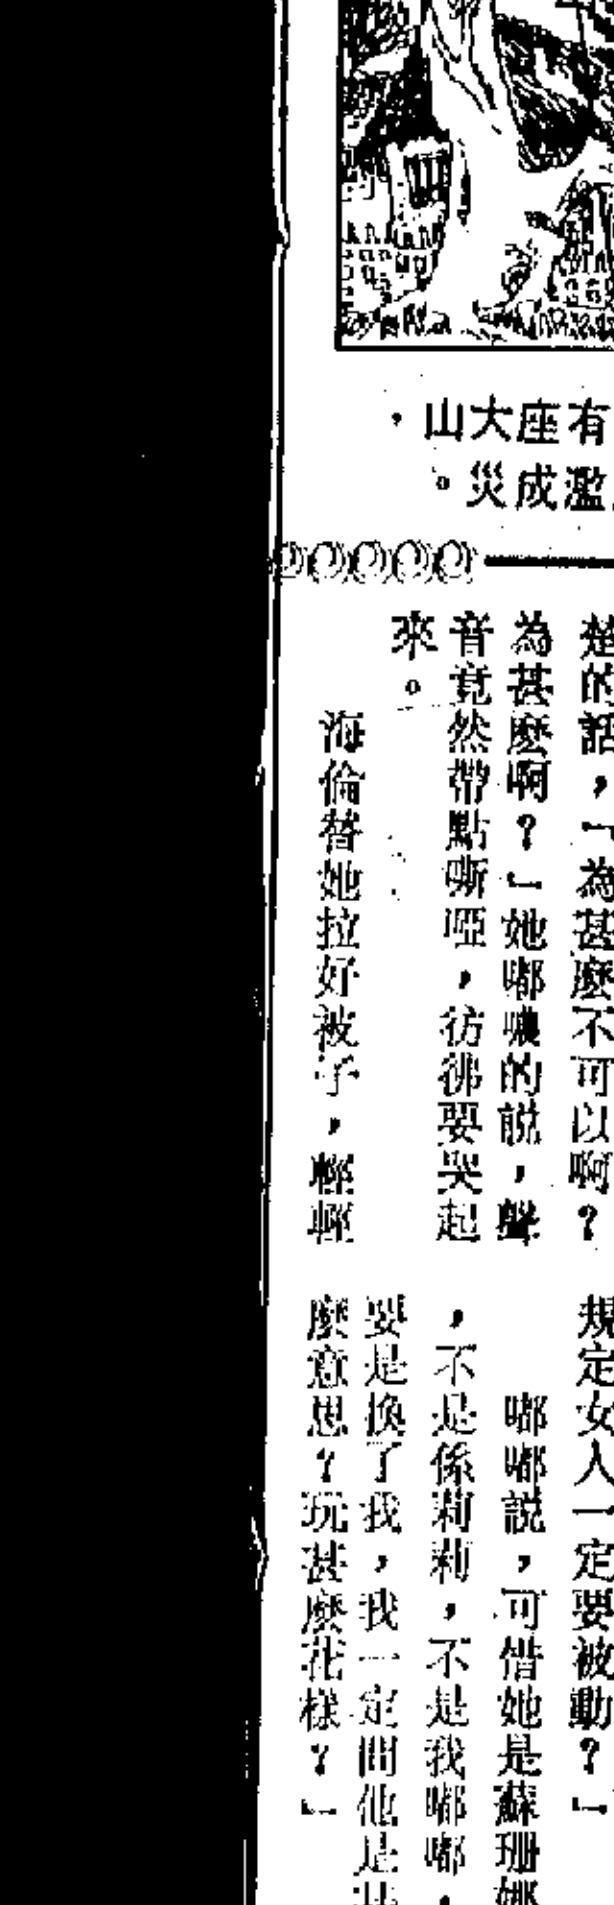 有座大山，
濫成災。
楚的話，「為甚麼不可以啊？
為甚麼啊？」她嘟噥的說，聲
音竟然帶點嘶啞，彷彿要哭起
來。
海倫替她拉好被子，輕輕
規定女人一定要被動？」
嘟嘟說，可惜她是蘇珊娜
，不是係莉莉，不是我嘟嘟，
要是換了我，我一定問他是甚
麼意思？玩甚麼花樣？」